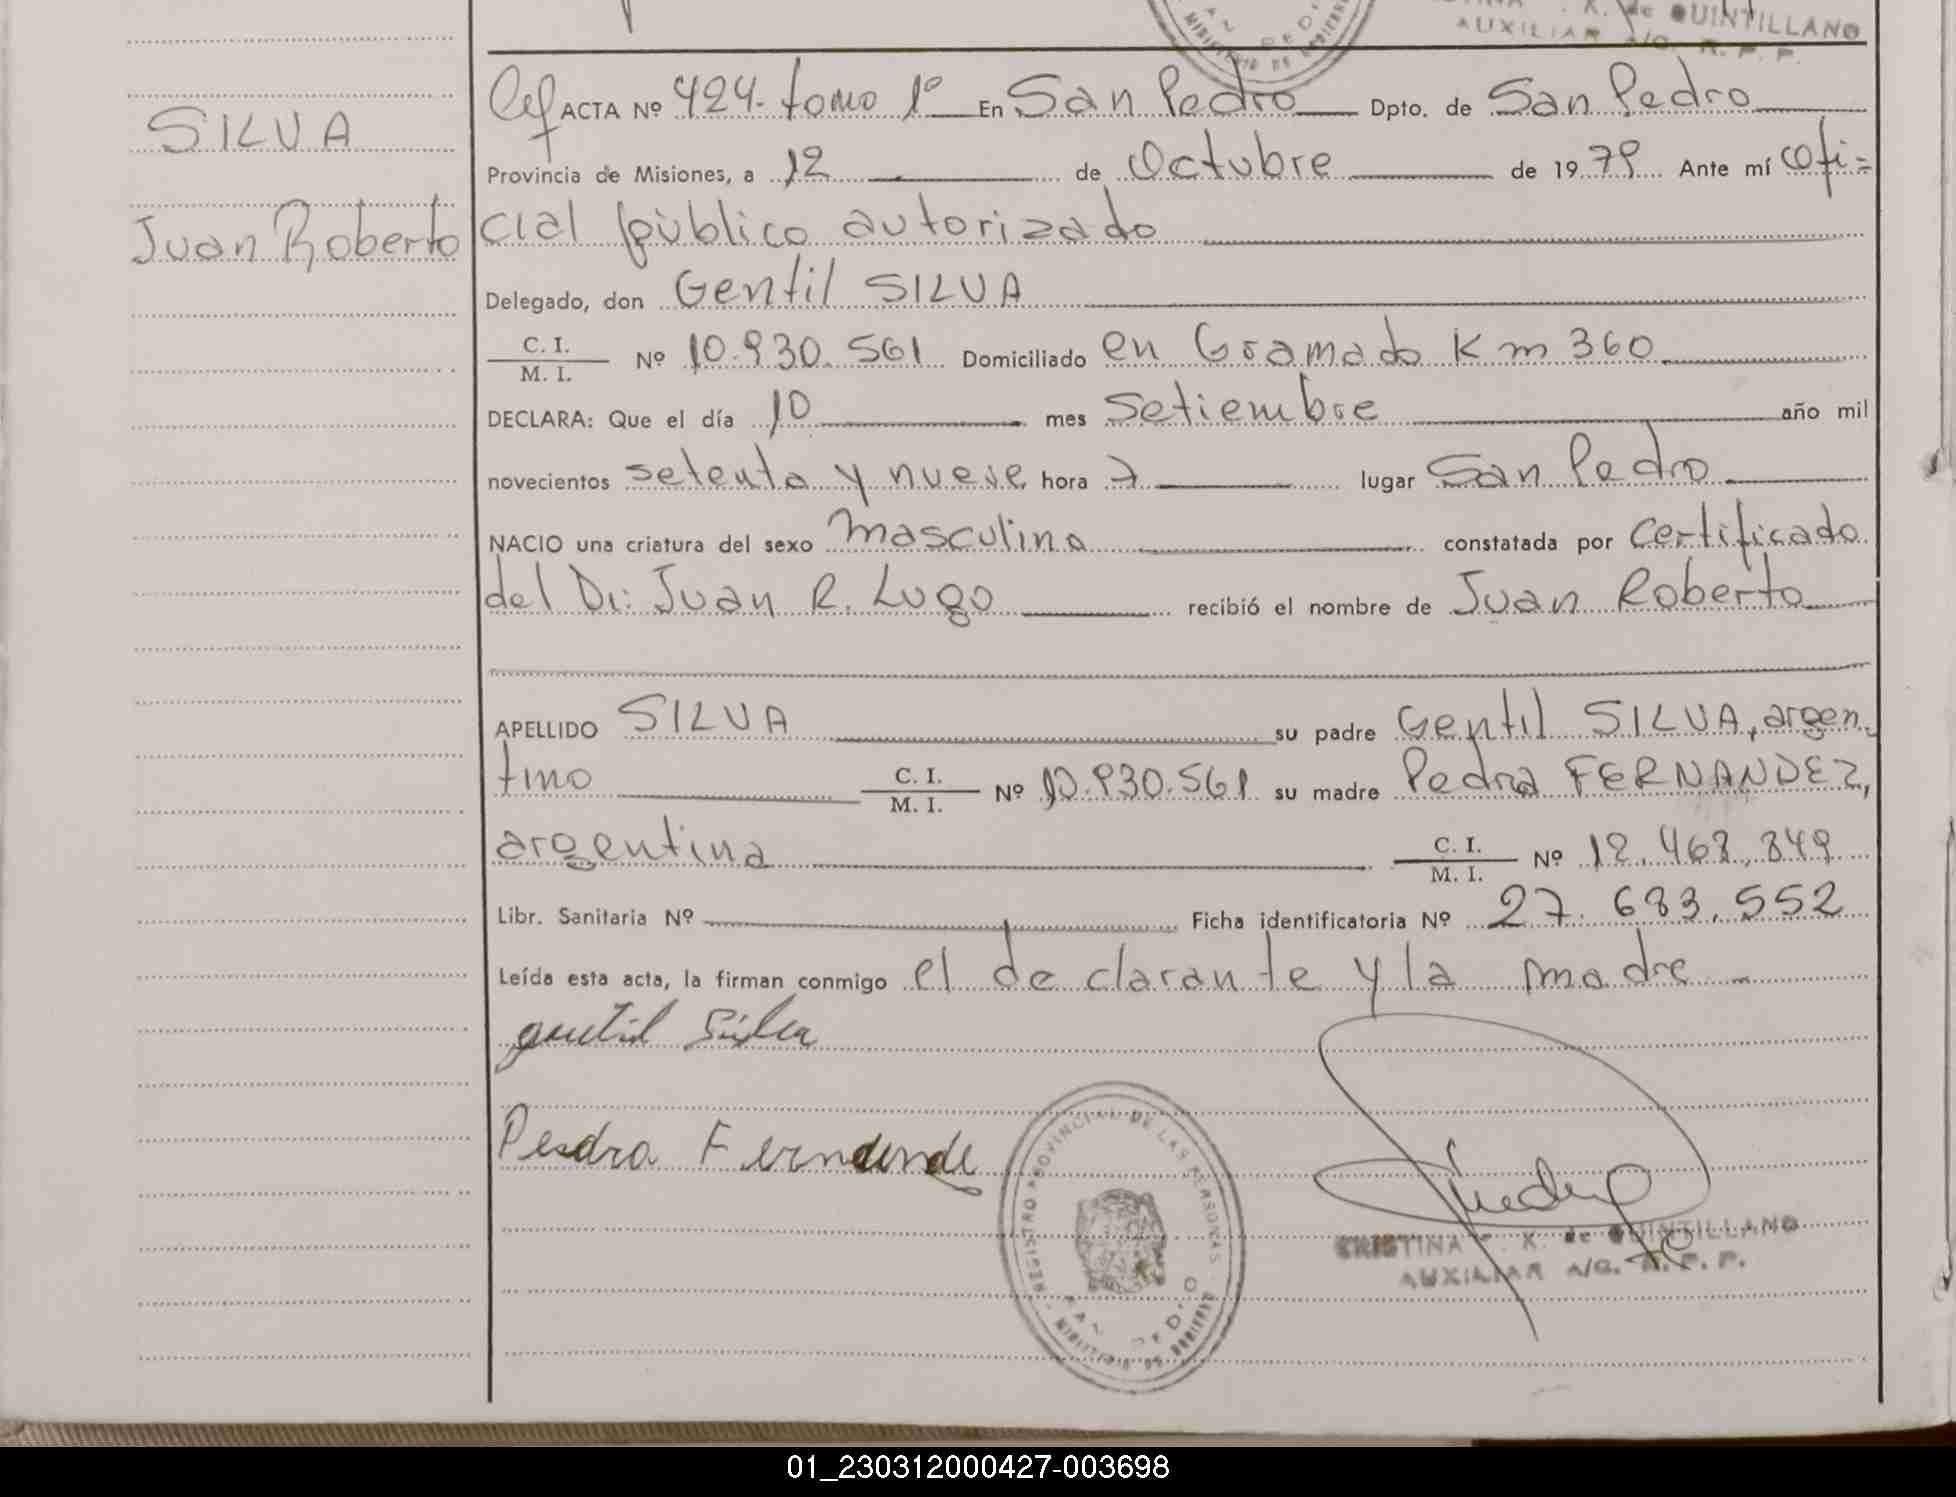 QUINTILLANO
AUXILIAR A/C. R. P. P.
SILVA
Juan Roberto
ACTA Nº 424. tomo 1º En San Pedro Dpto. de San Pedro
Provincia de Misiones, a 12 de Octubre de 1979. Ante mí ofi=
cial público autorizado
Delegado, don Gentil SILVA
C. I.
M. I. Nº 10.930.561 Domiciliado en Gramado Km 360
DECLARA: Que el día 10 mes Setiembre año mil
novecientos setenta y nueve hora 7 lugar San Pedro
NACIO una criatura del sexo masculino constatada por Certificado
del Dr: Juan R. Lugo recibió el nombre de Juan Roberto
APELLIDO SILVA su padre Gentil SILVA, argen-
tino C. I.
M. I. Nº 10.930.561 su madre Pedra FERNANDEZ,
argentina C. I.
M. I. Nº 12.468.849
Libr. Sanitaria Nº Ficha identificatoria Nº 27.683.552
Leída esta acta, la firman conmigo el declarante y la madre
gentil Silva
Pesdra Ferndende
REGISTRO PROVINCIAL DE LAS PERSONAS - MINISTERIO DE GOBIERNO
SAN PEDRO
CRISTINA K. de QUINTILLANO
AUXILIAR A/C. R. P. P.
01_230312000427-003698